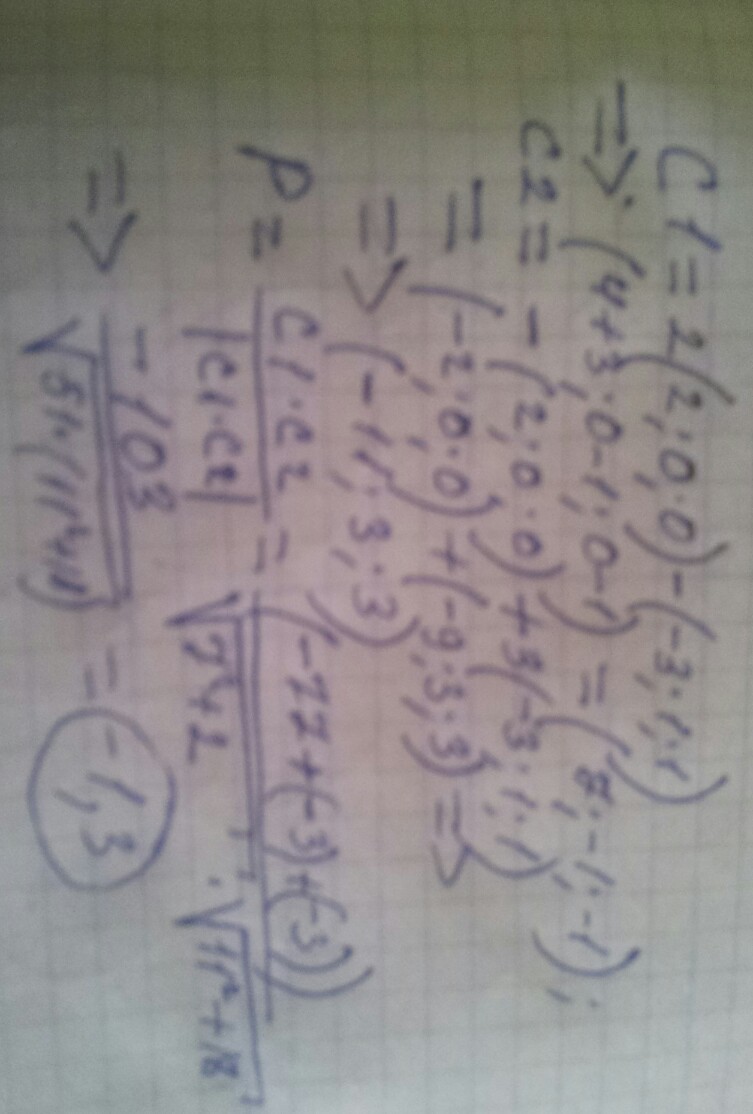 C1 = 2(2; 0; 0) - (-3; 1; 1)
=> (4+3; 0-1; 0-1) = (7; -1; -1);
C2 = -(2; 0; 0) + 3(-3; 1; 1)
= (-2; 0; 0) + (-9; 3; 3) =>
=> (-11; 3; 3)
P = C1·C2 / |C1·C2| = (-77+(-3)+(-3)) / √7²+2 · √11²+18
=> -103 / √51·(11²+18) = -1,3